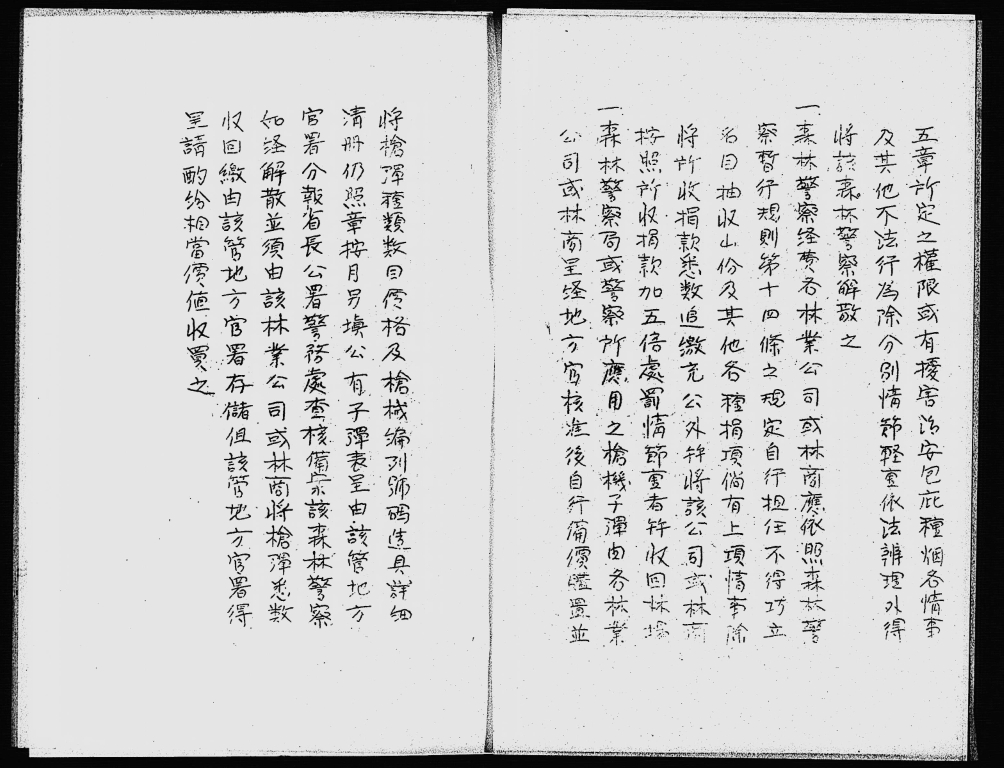 五章所定之權限或有擾害治安包庇種烟各情事
及其他不法行為除分別情節輕重依法辨理外得
將該森林警察解散之
一森林警察经费各林業公司或林商應依照森林警
察暂行規則第十四條之規定自行担任不得巧立
名目抽收山份及其他各種捐項倘有上項情事除
將所收捐款悉数追繳充公外并將該公司或林商
按照所收捐款加五倍處罰情節重者并收回林場
一森林警察局或警察所應用之槍機子彈由各林業
公司或林商呈经地方官核准後自行備價購置並
將槍彈種類数目價格及槍械编列號码造具詳细
清册仍照章按月另填公有子彈表呈由該管地方
官署分報省長公署警務處查核備案該森林警察
如经解散並須由該林業公司或林商將槍彈悉数
收回繳由該管地方官署存儲但該管地方官署得
呈請酌给相當價值收買之